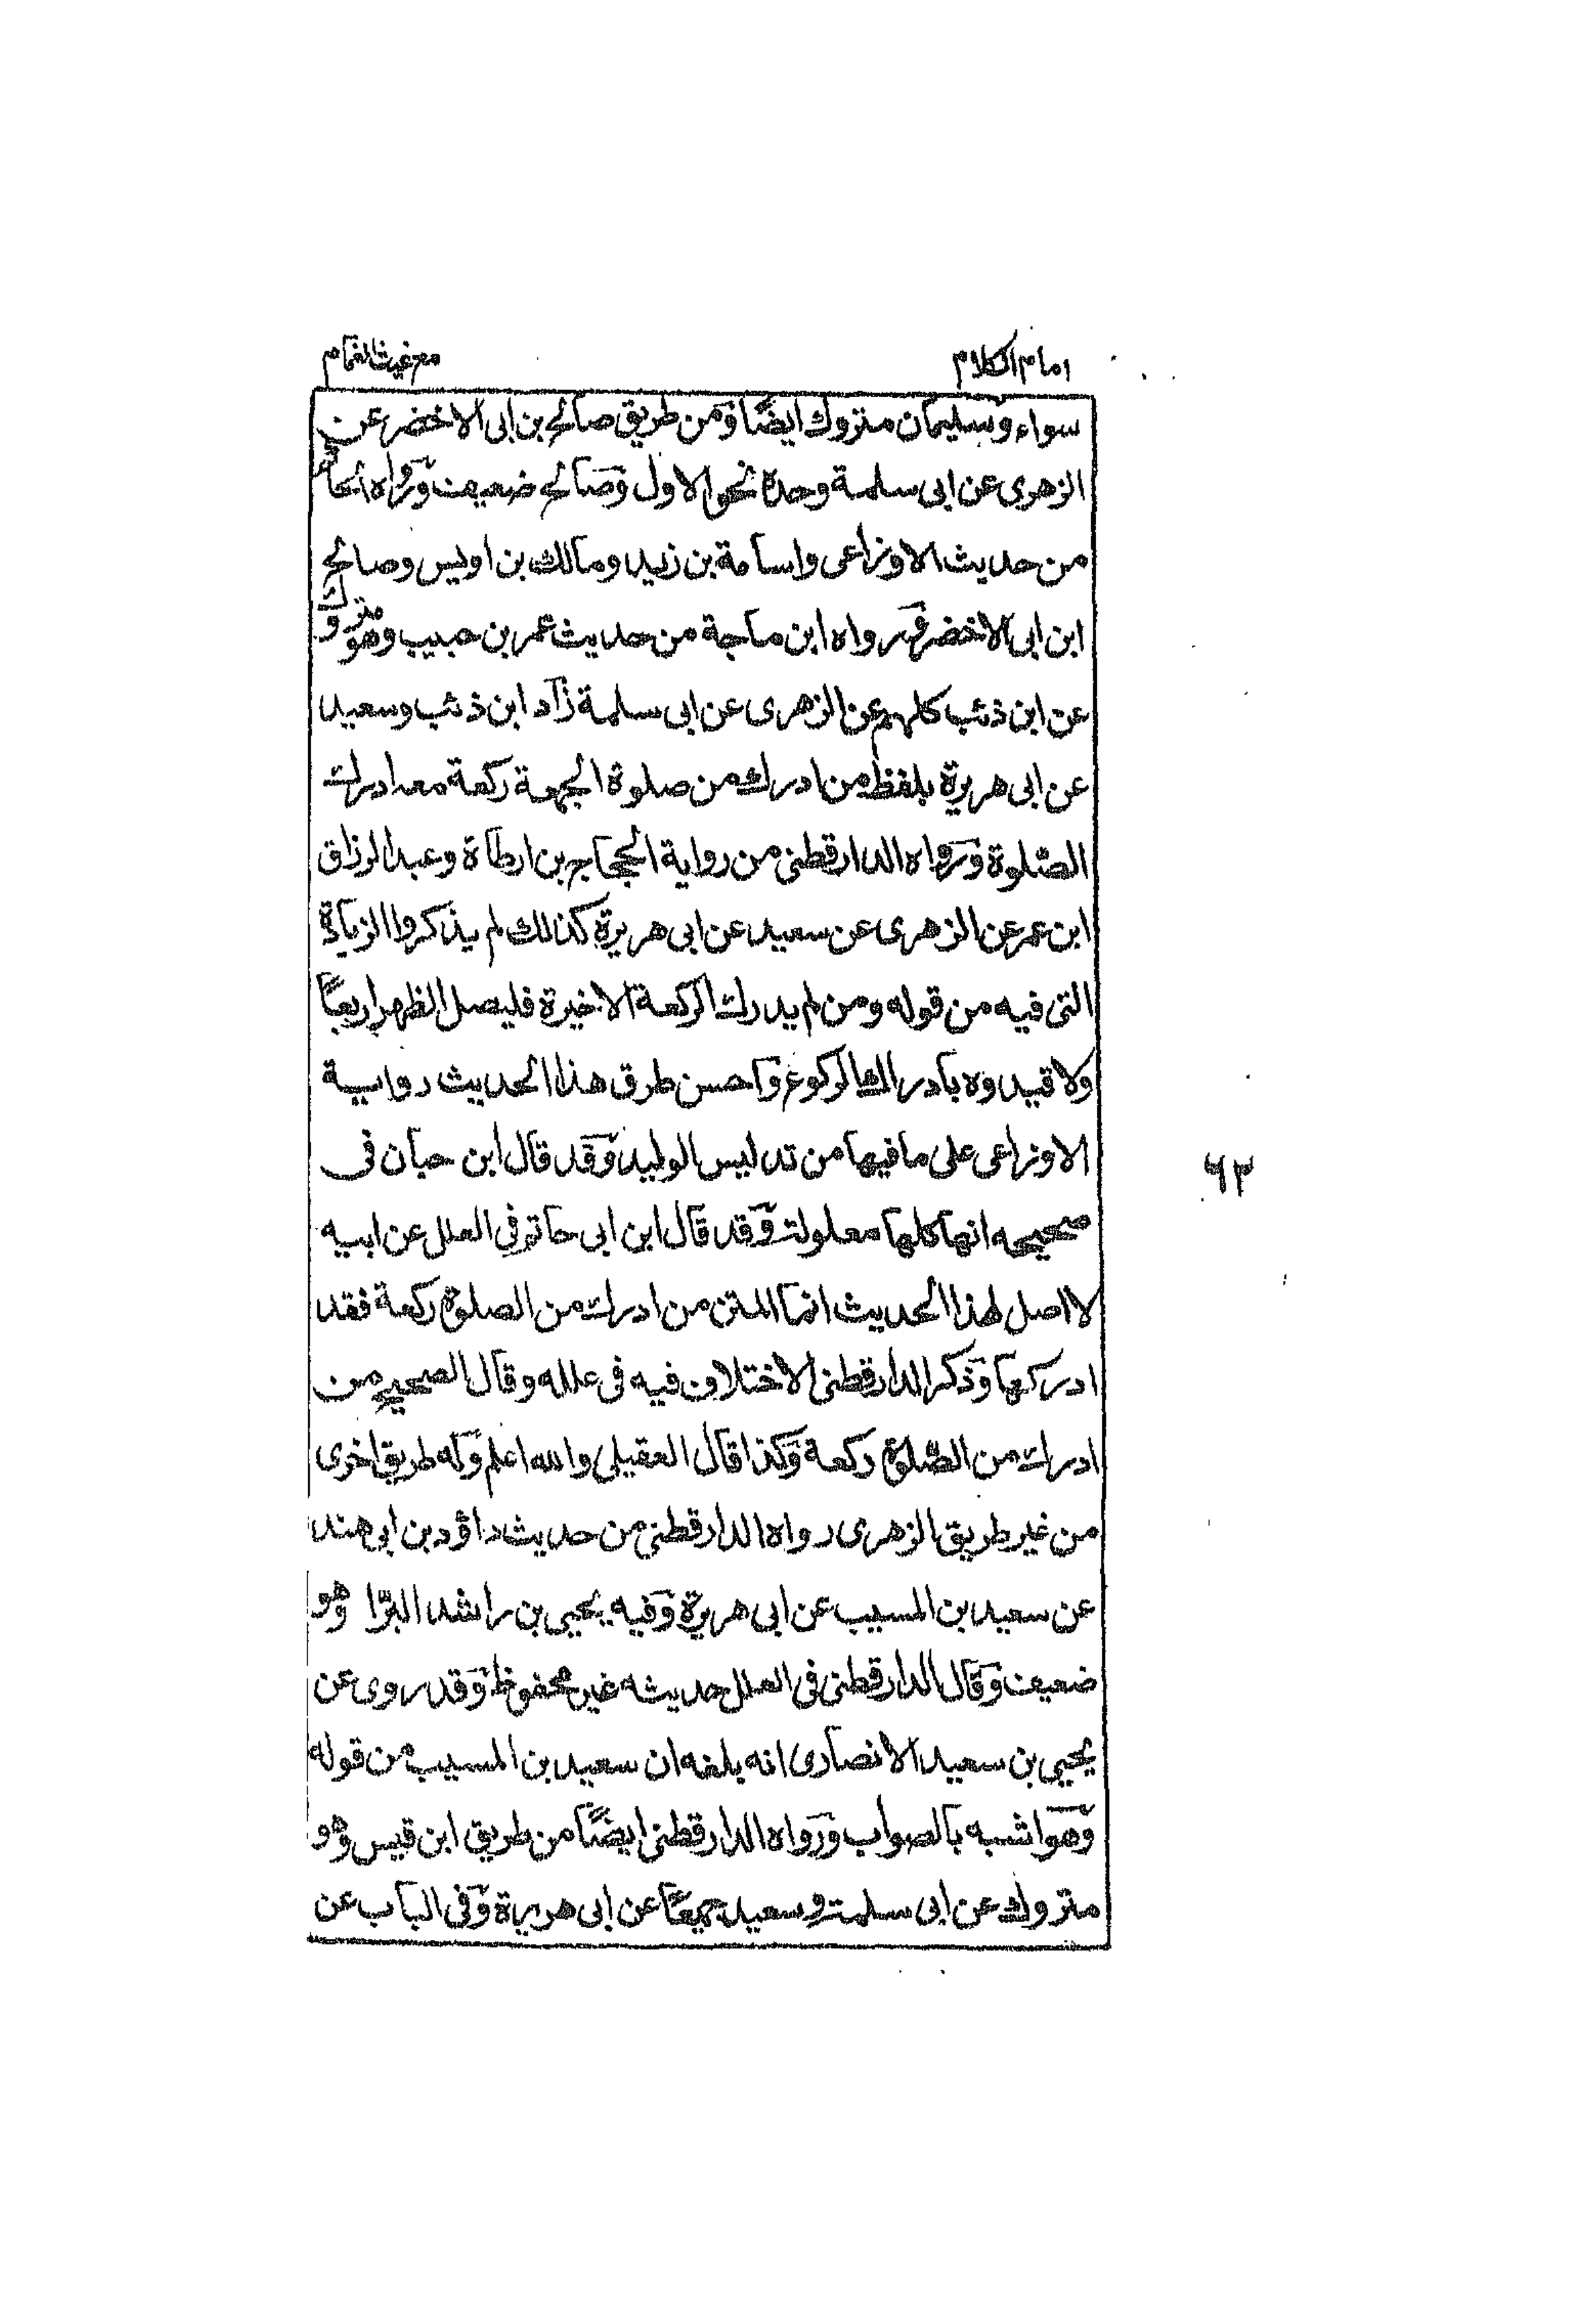 امام الكلام
مع غيث الغمام
سواء وسليمان متروك ايضًا ومن طريق صالح بن ابى الاخضر عن
الزهرى عن ابى سلمة وحدة نحو الاول وصالح ضعيف ورواه الحاكم
من حديث الاوزاعى واسامة بن زيد ومالك بن اويس وصالح
ابن ابى الاخضر ورواه ابن ماجة من حديث عمر بن حبيب وهو متروك
عن ابن ذئب كلهم عن الزهرى عن ابى سلمة زاد ابن ذئب وسعيد
عن ابى هريرة بلفظ من ادرك من صلوة الجمعة ركعة معه ادرك
الصلوة ورواه الدارقطنى من رواية الحجاج بن ارطاة وعبد الرزاق
ابن عمر عن الزهرى عن سعيد عن ابى هريرة كذلك لم يذكروا الزيادة
التى فيه من قوله ومن لم يدرك الركعة الاخيرة فليصل الظهر اربعًا
ولا قيدوه بادراك الركوع واحسن طرق هذا الحديث رواية
الاوزاعى على ما فيها من تدليس الوليد وقد قال ابن حبان فى
صحيحه انها كلها معلولة وقد قال ابن ابى حاتم فى العلل عن ابيه
لا اصل لهذا الحديث انما المتن من ادرك من الصلوة ركعة فقد
ادركها وذكر الدارقطنى الاختلاف فيه فى علله وقال الصحيح من
ادرك من الصلوة ركعة وكذا قال العقيلى والله اعلم وله طريق اخرى
من غير طريق الزهرى رواه الدارقطنى من حديث داؤد بن ابى هند
عن سعيد بن المسيب عن ابى هريرة وفيه يحيى بن راشد البرّا وهو
ضعيف وقال الدارقطنى فى العلل حديثه غير محفوظ وقد روى عن
يحيى بن سعيد الانصارى انه بلغه ان سعيد بن المسيب من قوله
وهو اشبه بالصواب ورواه الدارقطنى ايضًا من طريق ابن قيس وهو
متروك عن ابى سلمة وسعيد جميعًا عن ابى هريرة وفى الباب عن
٦٢